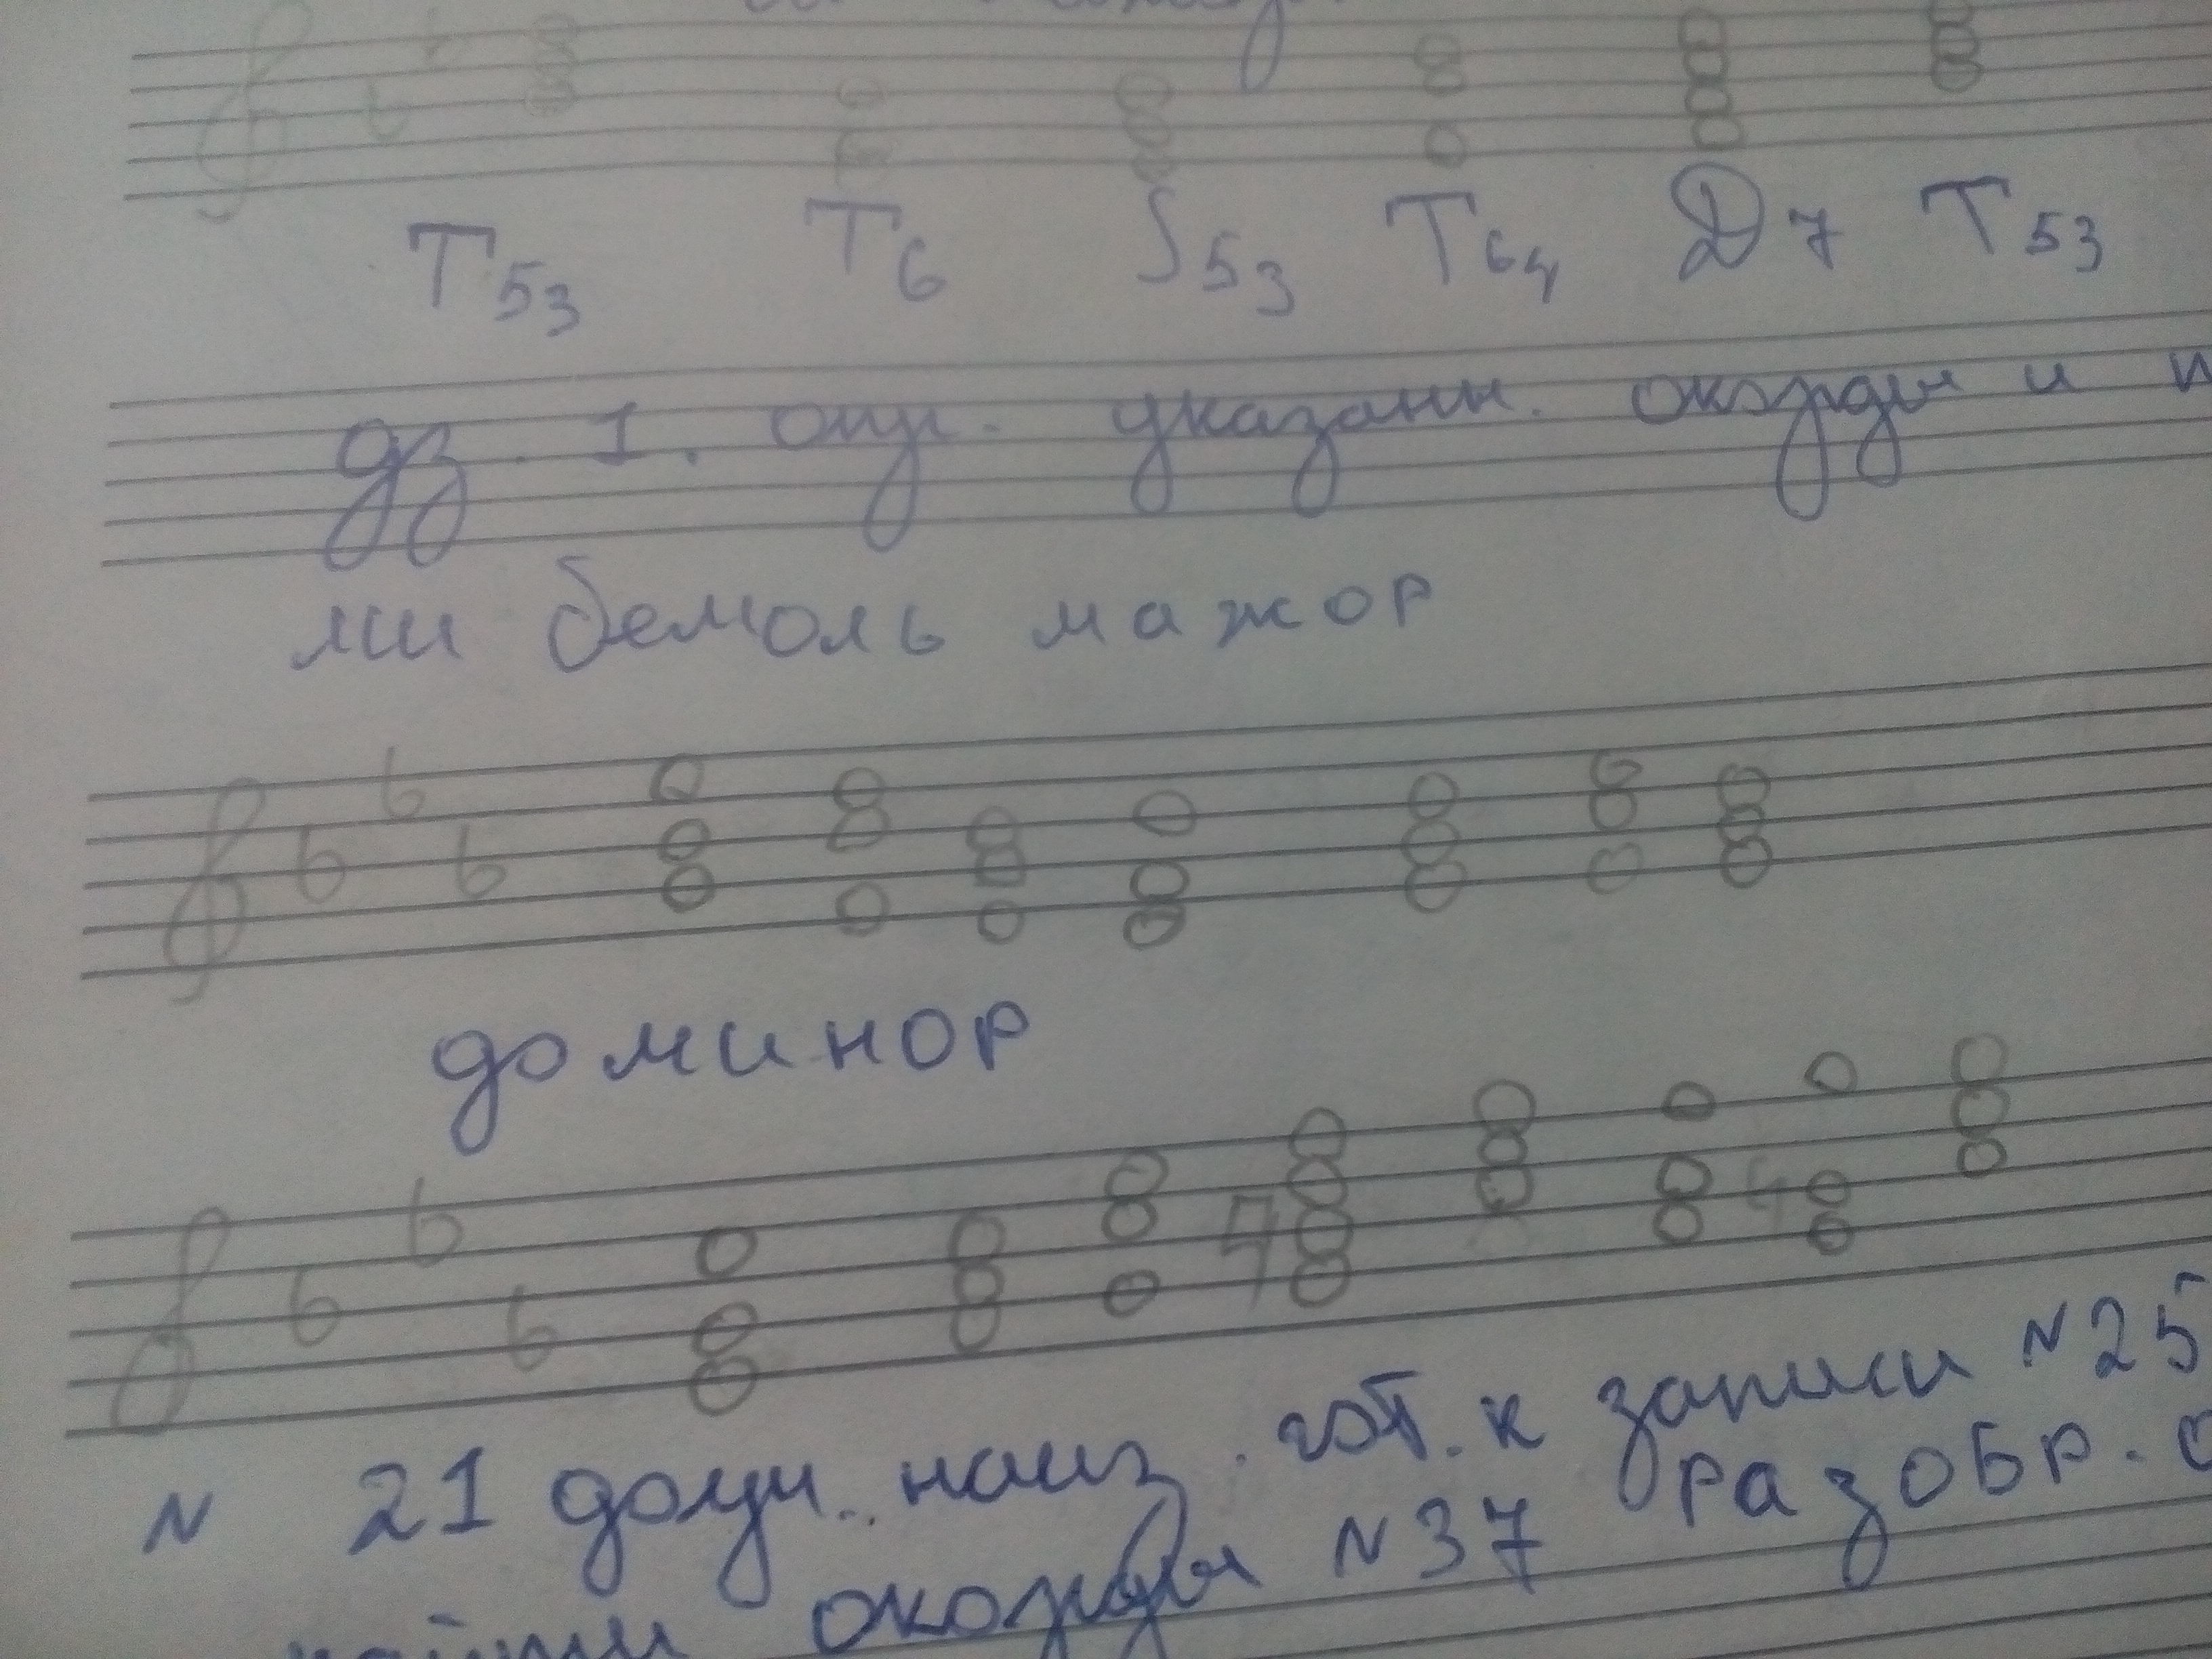 T53 T6 S53 T64 D7 T53
дз. 1. опр. указанн. окорды и
ми бемоль мажор
до минор
N 21 допи. наиз. гот. к записи N25
окорды N37 разобр.